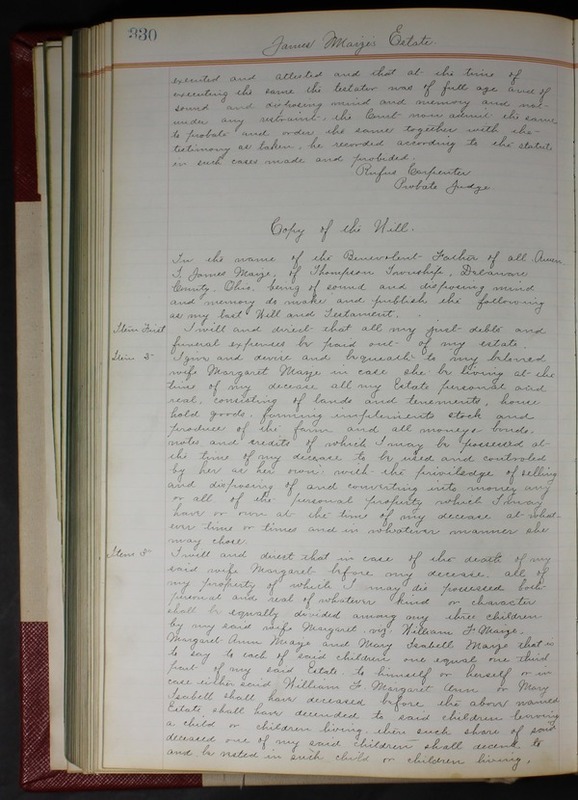 330
James Maize's Estate.
executed and attested and that at the time of
executing the same the testator was of full age and of
sound and disposing mind and memory and not
under any restraint, the Court now admit the same
to probate and order the same together with the
testimony as taken, be recorded according to the statute
in such cases made and provided.
Rufus Carpenter
Probate Judge
Copy of the Will.
In the name of the Benevolent Father of all Amen
I, James Maize, of Thompson Township, Delaware
County, Ohio, being of sound and disposing mind
and memory do make and publish the following
as my last Will and Testament.
Item First I will and direct that all my just debts and
funeral expenses be paid out of my estate.
Item 2d I give and devise and bequeath to my beloved
wife Margaret Maize in case she be living at the
time of my decease all my Estate personal and
real, consisting of lands and tenements, house
hold goods, farming implements stock and
produce of the farm and all moneys bonds,
notes and credits of which I may be possessed at
the time of my decease to be used and controled
by her as her own: with the priviledge of selling
and disposing of and converting into money any
or all of the personal property which I may
have or own at the time of my decease at what-
ever time or times and in whatever manner she
may chose.
Item 3d I will and direct that in case of the death of my
said wife Margaret before my decease, all of
my property of which I may die possessed both
personal and real of whatever kind or character
shall be equally divided among my three children
by my said wife Margaret, viz: William F. Maize,
Margaret Ann Maize and Mary Isabell Maize that is
to say to each of said children one equal one third
part of my said Estate to himself or herself or in
case either said William F. Margaret Ann or Mary
Isabell shall have deceased before the above named
Estate shall have decended to said children leaving
a child or children living, then such share of said
deceased one of my said children shall decend to
and be vested in such child or children living,